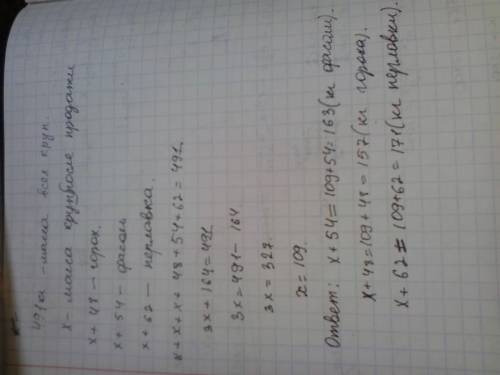 491 кг - масса всех круп.
x - масса круп после продажи
x + 48 - горох.
x + 54 - фасоль
x + 62 - перловка.
x + x + x + 48 + 54 + 62 = 491
3x + 164 = 491
3x = 491 - 164
3x = 327.
x = 109.
Ответ: x + 54 = 109 + 54 = 163 (кг фасоли).
x + 48 = 109 + 48 = 157 (кг гороха).
x + 62 = 109 + 62 = 171 (кг перловки).